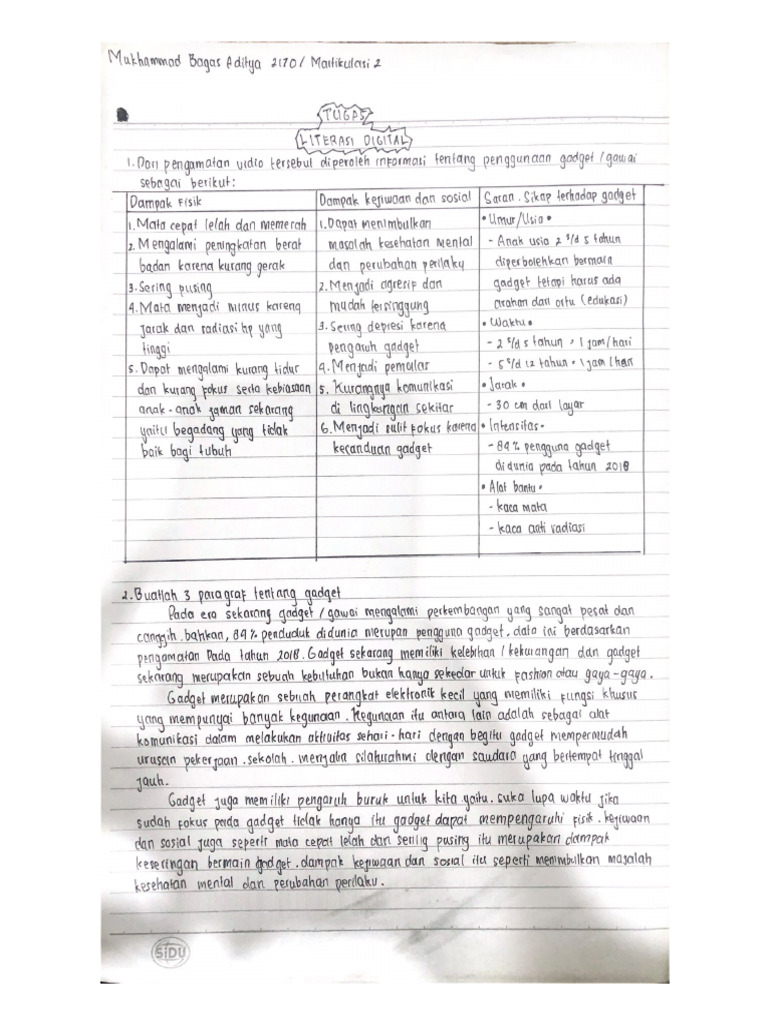 Mukhammad Bagas Aditya 2170/ Martikulasi 2
TUGAS
LITERASI DIGITAL
1. Dari pengamatan vidio tersebut diperoleh informasi tentang penggunaan gadget/gawai
sebagai berikut:
Dampak Fisik
1. Mata cepat lelah dan memerah
2. Mengalami peningkatan berat
badan karena kurang gerak
3. Sering pusing
4. Mata menjadi minus karena
jarak dan radiasi hp yang
tinggi
5. Dapat mengalami kurang tidur
dan kurang fokus serta kebiasaan
anak-anak jaman sekarang
yaitu begadang yang tidak
baik bagi tubuh
Dampak kejiwaan dan sosial
1. Dapat menimbulkan
masalah kesehatan mental
dan perubahan perilaku
2. Menjadi agresif dan
mudah tersinggung
3. Sering depresi karena
pengaruh gadget
4. Menjadi pemalas
5. Kurangnya komunikasi
di lingkungan sekitar
6. Menjadi sulit fokus karena
kecanduan gadget
Saran. Sikap terhadap gadget
• Umur/Usia •
- Anak usia 2 s/d 5 tahun
diperbolehkan bermain
gadget tetapi harus ada
arahan dari ortu (edukasi)
• Waktu •
- 2 s/d 5 tahun = 1 jam/hari
- 5 s/d 12 tahun = 1 jam/hari
• Jarak •
- 30 cm dari layar
• Intensitas •
- 84% pengguna gadget
di dunia pada tahun 2018
• Alat bantu •
- kaca mata
- kaca anti radiasi
2. Buatlah 3 paragraf tentang gadget
Pada era sekarang gadget/gawai mengalami perkembangan yang sangat pesat dan
canggih. bahkan, 84% penduduk didunia merupan pengguna gadget, data ini berdasarkan
pengamatan Pada tahun 2018. Gadget sekarang memiliki kelebihan/kekurangan dan gadget
sekarang merupakan sebuah kebutuhan bukan hanya sekedar untuk fashion atau gaya-gaya.
Gadget merupakan sebuah perangkat elektronik kecil yang memiliki fungsi khusus
yang mempunyai banyak kegunaan. Kegunaan itu antara lain adalah sebagai alat
komunikasi dalam melakukan aktivitas sehari-hari dengan begitu gadget mempermudah
urusan pekerjaan. sekolah. menjalin silaturahmi dengan saudara yang bertempat tinggal
jauh.
Gadget juga memiliki pengaruh buruk untuk kita yaitu. suka lupa waktu jika
sudah fokus pada gadget tidak hanya itu gadget dapat mempengaruhi fisik. kejiwaan
dan sosial juga seperti mata cepat lelah dan sering pusing itu merupakan dampak
keseringan bermain gadget. dampak kejiwaan dan sosial itu seperti menimbulkan masalah
kesehatan mental dan perubahan perilaku.
SiDU